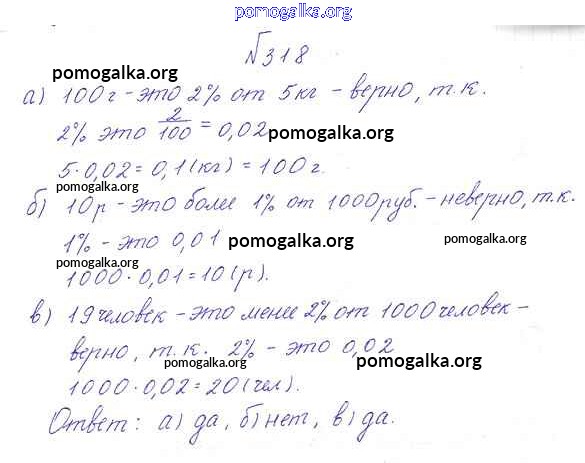 pomogalka.org
№318
pomogalka.org
а) 100г - это 2% от 5кг - верно, т.к.
2% это 2/100 = 0,02 pomogalka.org
5·0,02 = 0,1(кг) = 100г.
pomogalka.org
б) 10р - это более 1% от 1000руб. - неверно, т.к.
1% - это 0,01 pomogalka.org pomogalka.org
pomogalka.org
1000·0,01 = 10(р).
в) 19человек - это менее 2% от 1000человек -
верно, т.к. 2% - это 0,02
pomogalka.org pomogalka.org
1000·0,02 = 20(чел).
Ответ: а) да, б) нет, в) да.